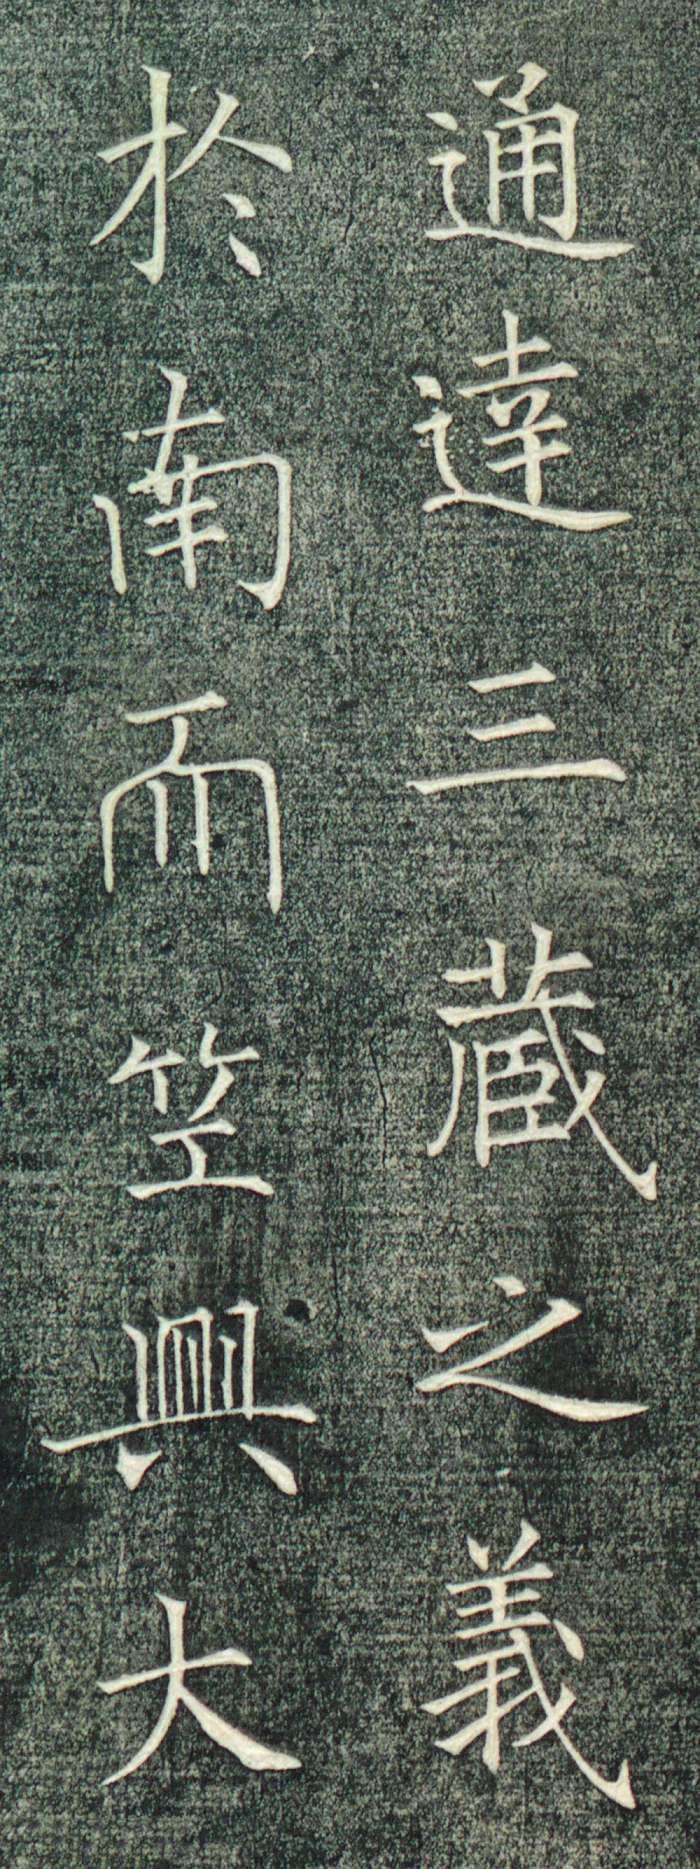 通達三藏之義
於南而笠興大